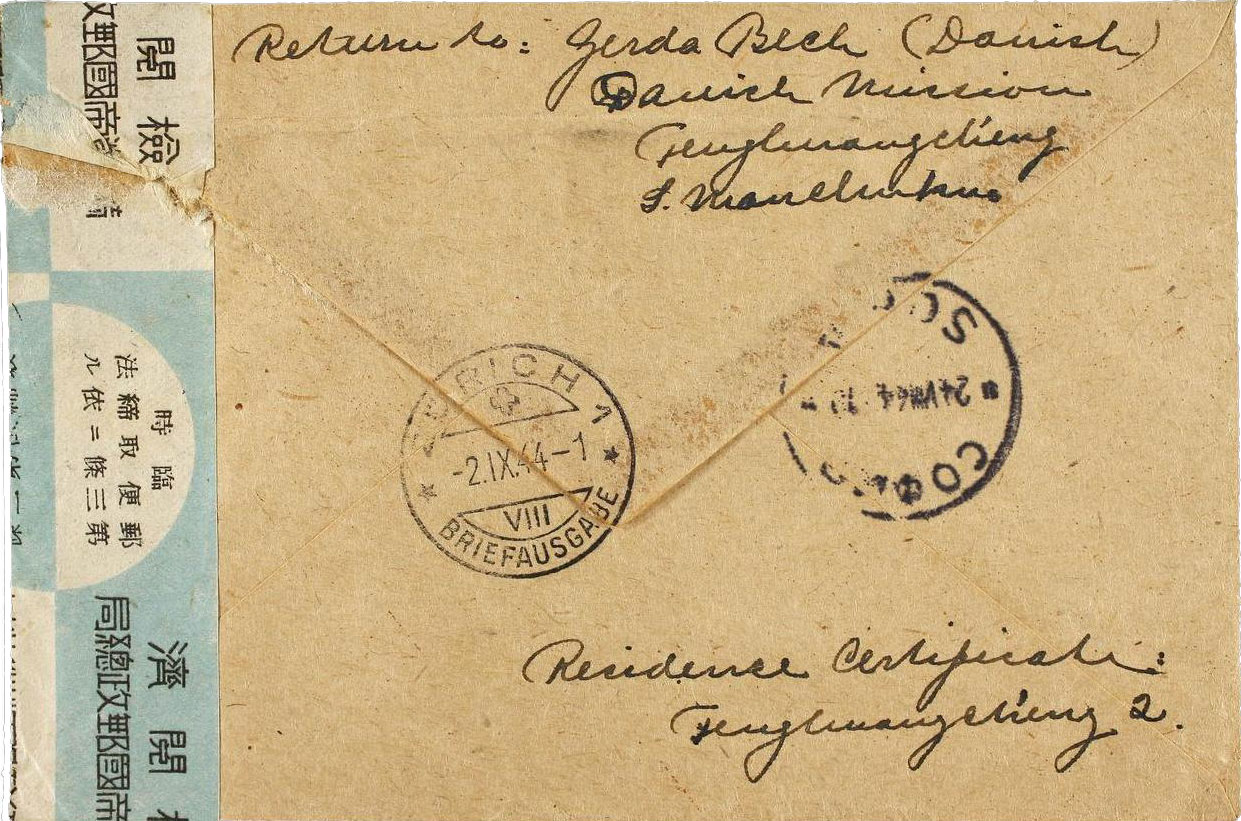 Return to: Gerda Bech (Danish)
Danish Mission
Fenghuangcheng
S. Manchukuo
檢閲
帝國郵政
臨時
郵便取締法
第三條ニ依ル
檢閲濟
帝國郵政總局
ZÜRICH 1
-2.IX.44-1
VIII
BRIEFAUSGABE
24 VIII 44
Residence Certificate:
Fenghuangcheng 2.